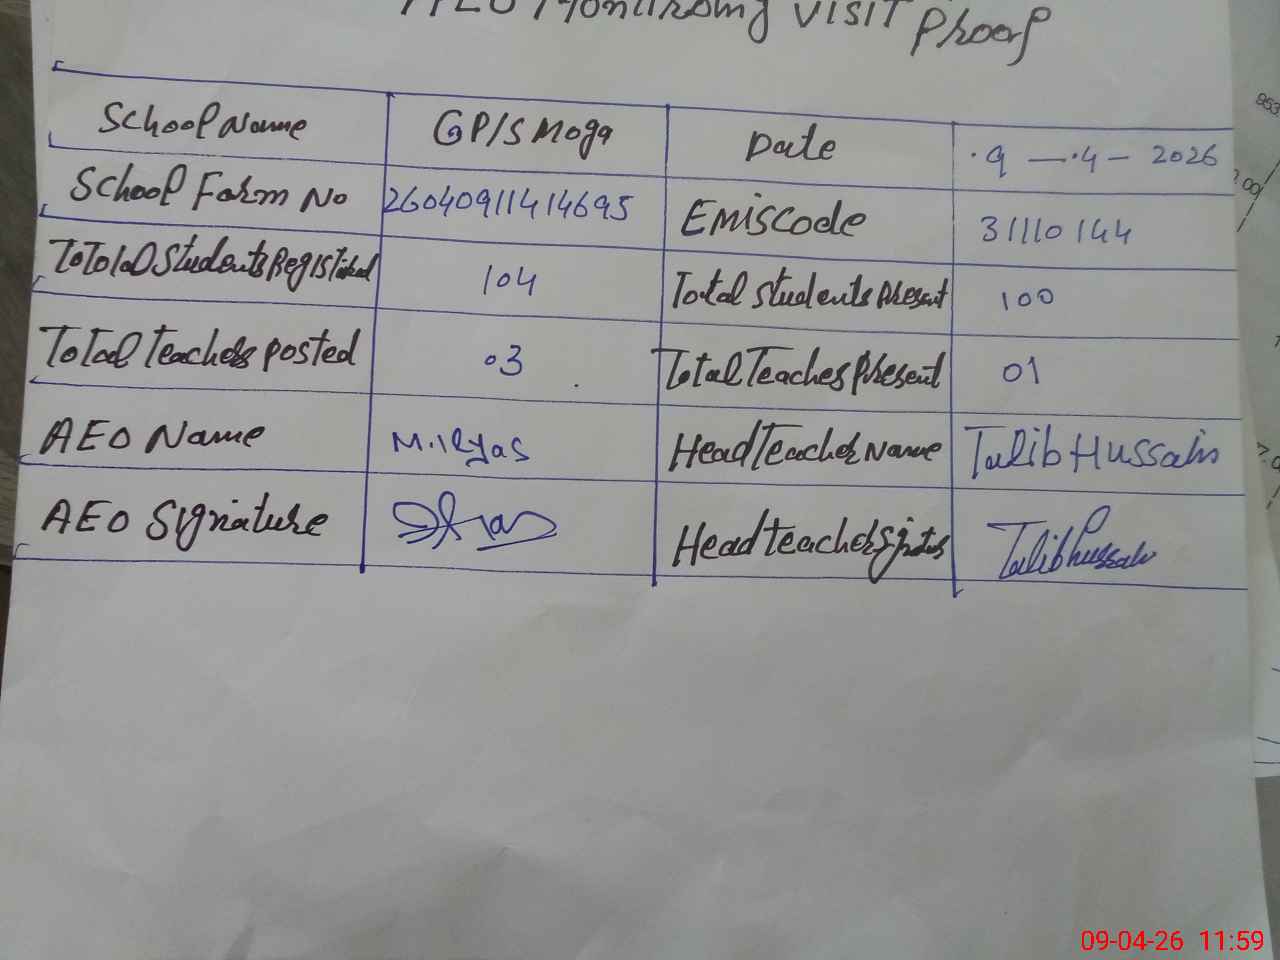 AEO Monitiroing VISIT Proof
School Name GP/S Moga Date 9-4-2026
School Farm No 26040911414695 EmisCode 31110144
104 Total Students Present 100
Total Teachers Posted 03 Total Teaches Present 01
AEO Name M.Ilyas Head Teacher Name Talib Hussain
AEO Signature Head teacher Talib Hussain
853
09-04-26 11:59